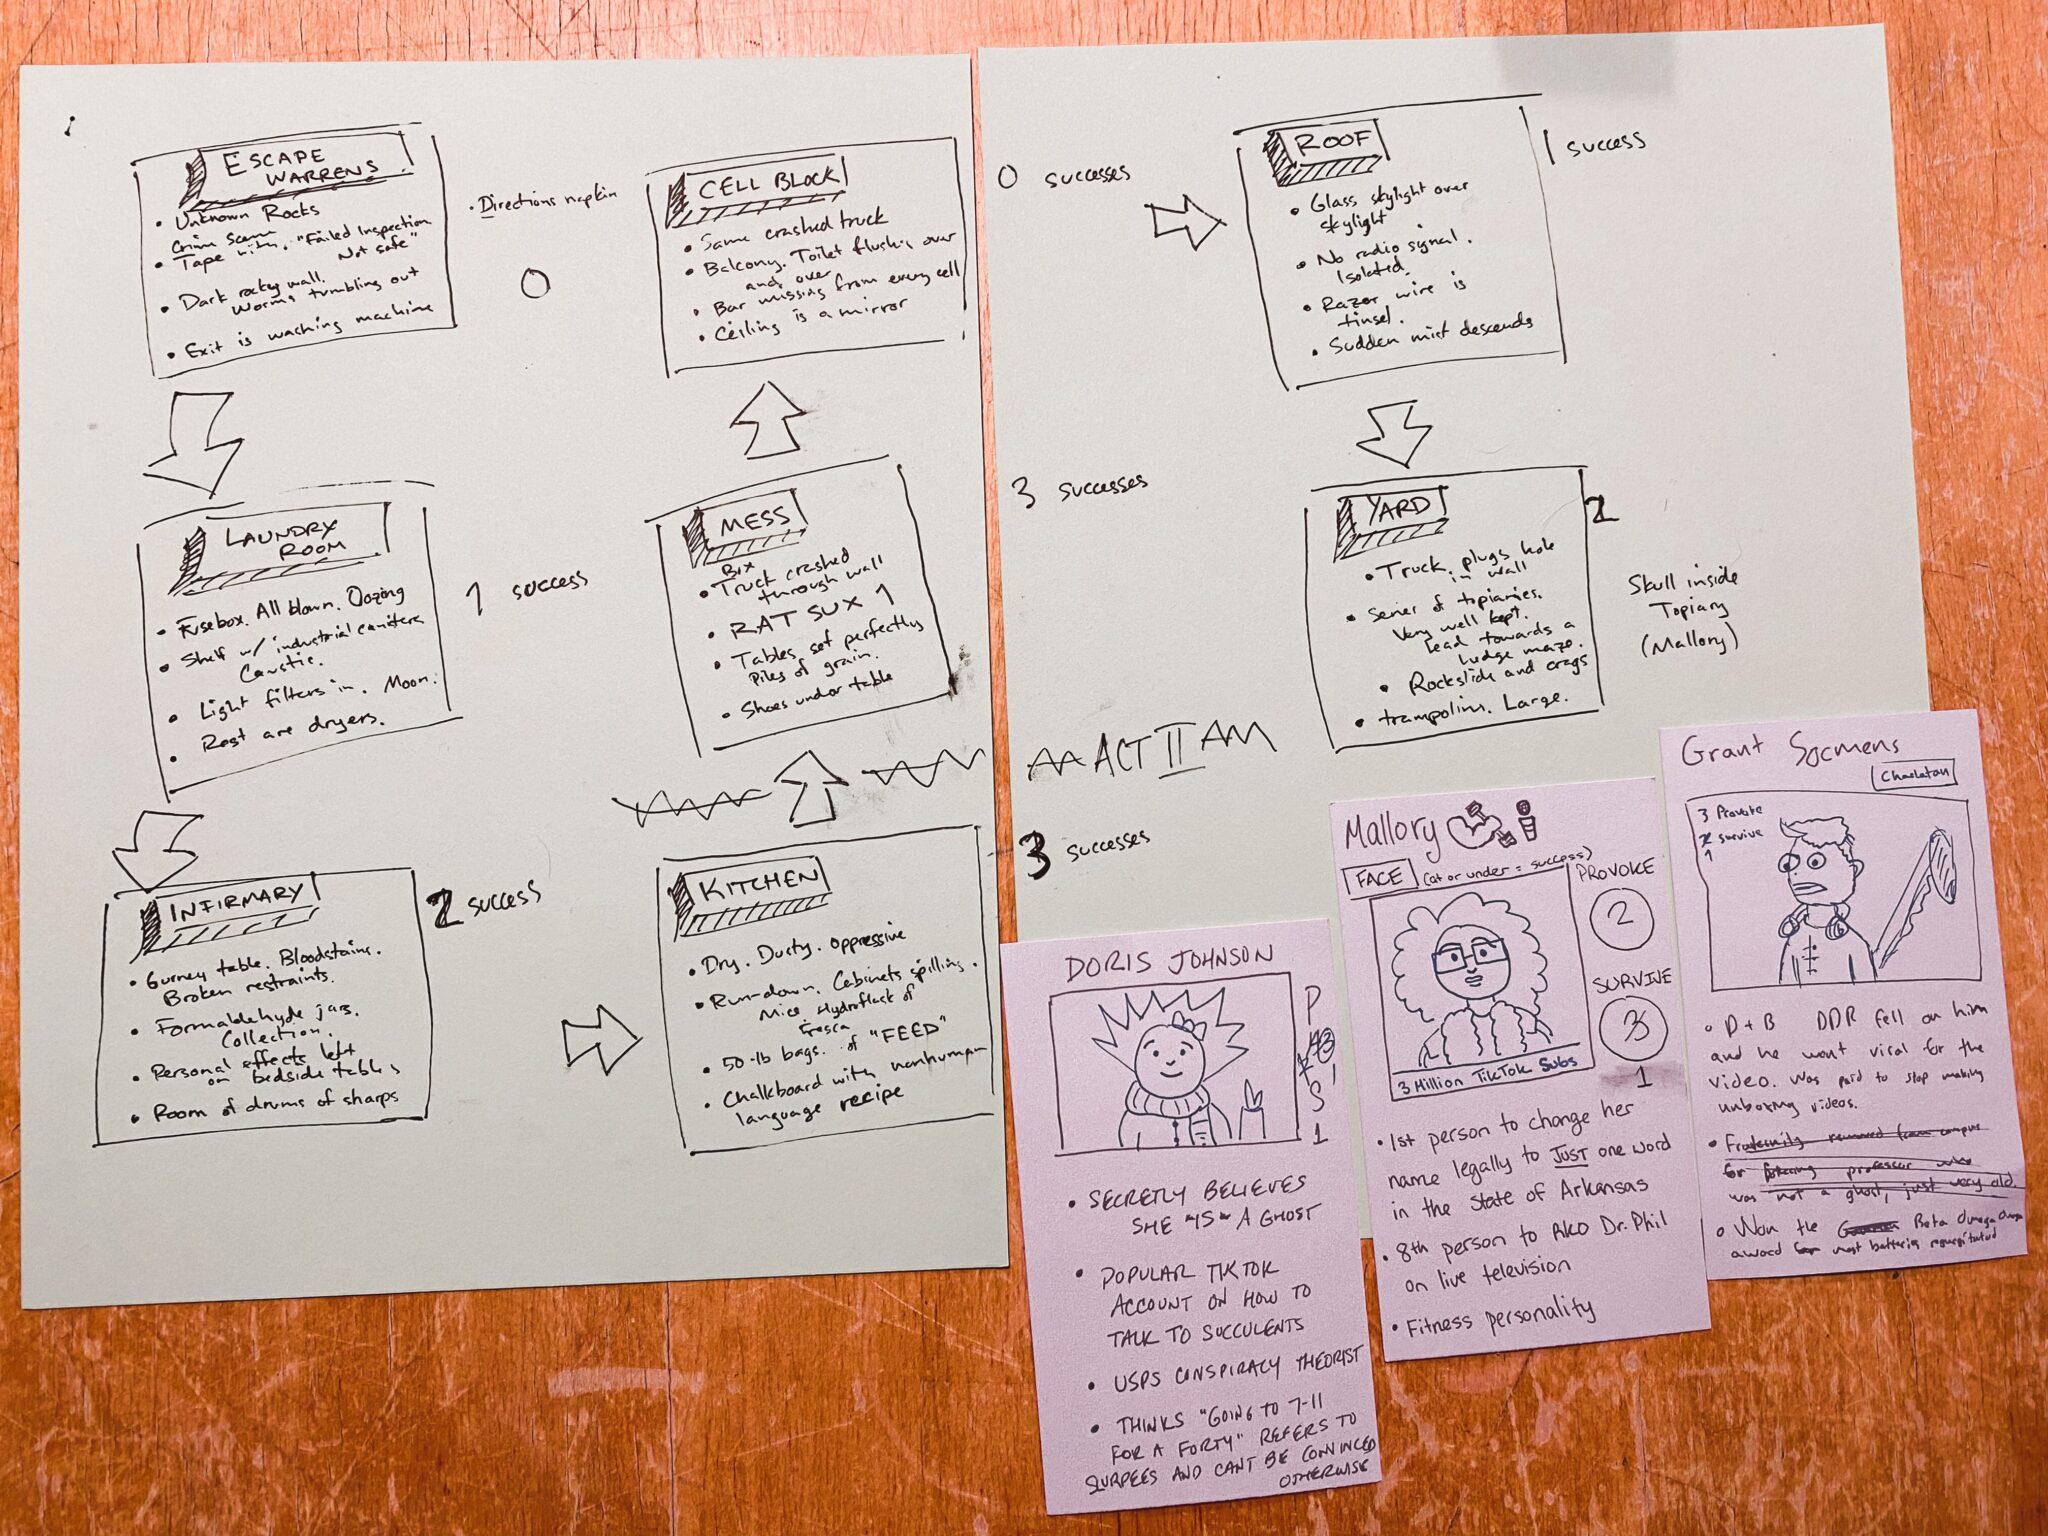 ESCAPE
WARRENS
• Unknown Rocks
Crim Scene
• Tape with. "Failed Inspection
Not safe"
• Dark rocky wall.
Worms tumbling out
• Exit is washing machine
• Directions napkin
0
LAUNDRY
ROOM
• Fusebox. All blown. Oozing
• Shelf w/ industrial canisters
Caustic.
• Light filters in. Moon.
• Rest are dryers.
1 success
INFIRMARY
• Gurney table. Bloodstains.
Broken restraints.
• Formaldehyde jars.
Collection.
• Personal effects left
on bedside tables
• Room of drums of sharps
2 success
CELL BLOCK
• Same crashed truck
• Balcony. Toilet flushing over
and over
• Bar missing from every cell
• Ceiling is a mirror
0 successes
MESS
Box
• Truck crashed
through wall
• RAT SUX 1
• Tables set perfectly
Piles of grain.
• Shoes under table
3 successes
ACT II
KITCHEN
• Dry. Dusty. Oppressive
• Run-down. Cabinets spilling.
Mice. Hydroflask of
Fresca
• 50-lb bags. of "FEED"
• Chalkboard with nonhuman
language recipe
3 successes
ROOF
• Glass skylight over
skylight
• No radio signal.
Isolated.
• Razor wire is
tinsel.
• Sudden mist descends
1 success
YARD
• Truck plugs hole
in wall
• Series of topiaries.
Very well kept.
Lead towards a
hedge maze.
• Rockslide and crags
• trampolins. Large.
2
Skull inside
Topiary
(Mallory)
DORIS JOHNSON
P
3
S
1
• SECRETLY BELIEVES
SHE *IS* A GHOST
• POPULAR TIKTOK
ACCOUNT ON HOW TO
TALK TO SUCCULENTS
• USPS CONSPIRACY THEORIST
• THINKS "GOING TO 7-11
FOR A FORTY" REFERS TO
SLURPEES AND CANT BE CONVINCED
OTHERWISE
Mallory
FACE
(at or under = success)
PROVOKE
2
SURVIVE
3
1
3 Million TikTok Subs
• 1st person to change her
name legally to JUST one word
in the state of Arkansas
• 8th person to RKO Dr. Phil
on live television
• Fitness personality
Grant Socmens
Charlatan
3 Provoke
2 survive
1
• D + B DDR fell on him
and he went viral for the
video. Was paid to stop making
unboxing videos.
• Fraternity removed from campus
for professor who
was not a ghost, just very old.
• Won the Beta Omega Omega
award for most batteries regurgitated